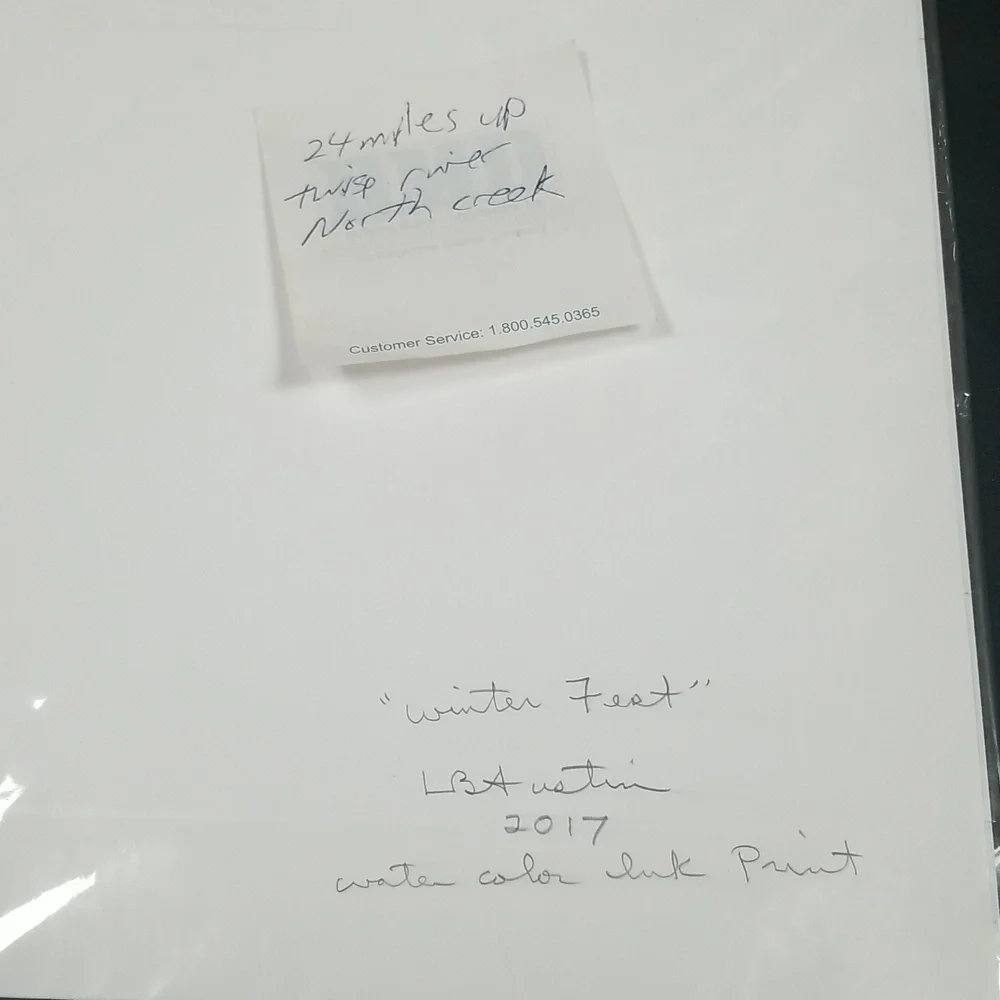 24 miles up
twisp river
North creek
Customer Service: 1.800.545.0365
"winter Fest"
LBAustin
2017
water color Ink Print